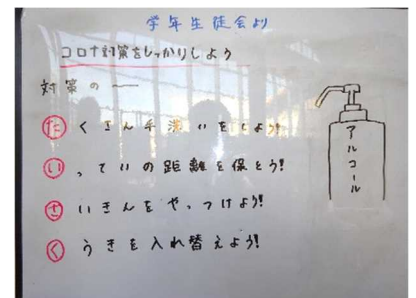 学年生徒会より
コロナ対策をしっかりしよう
対策の一
たくさん手洗いをしよう!
いっていの距離を保とう!
さいきんをやっつけよう!
くうきを入れ替えよう!
アルコール